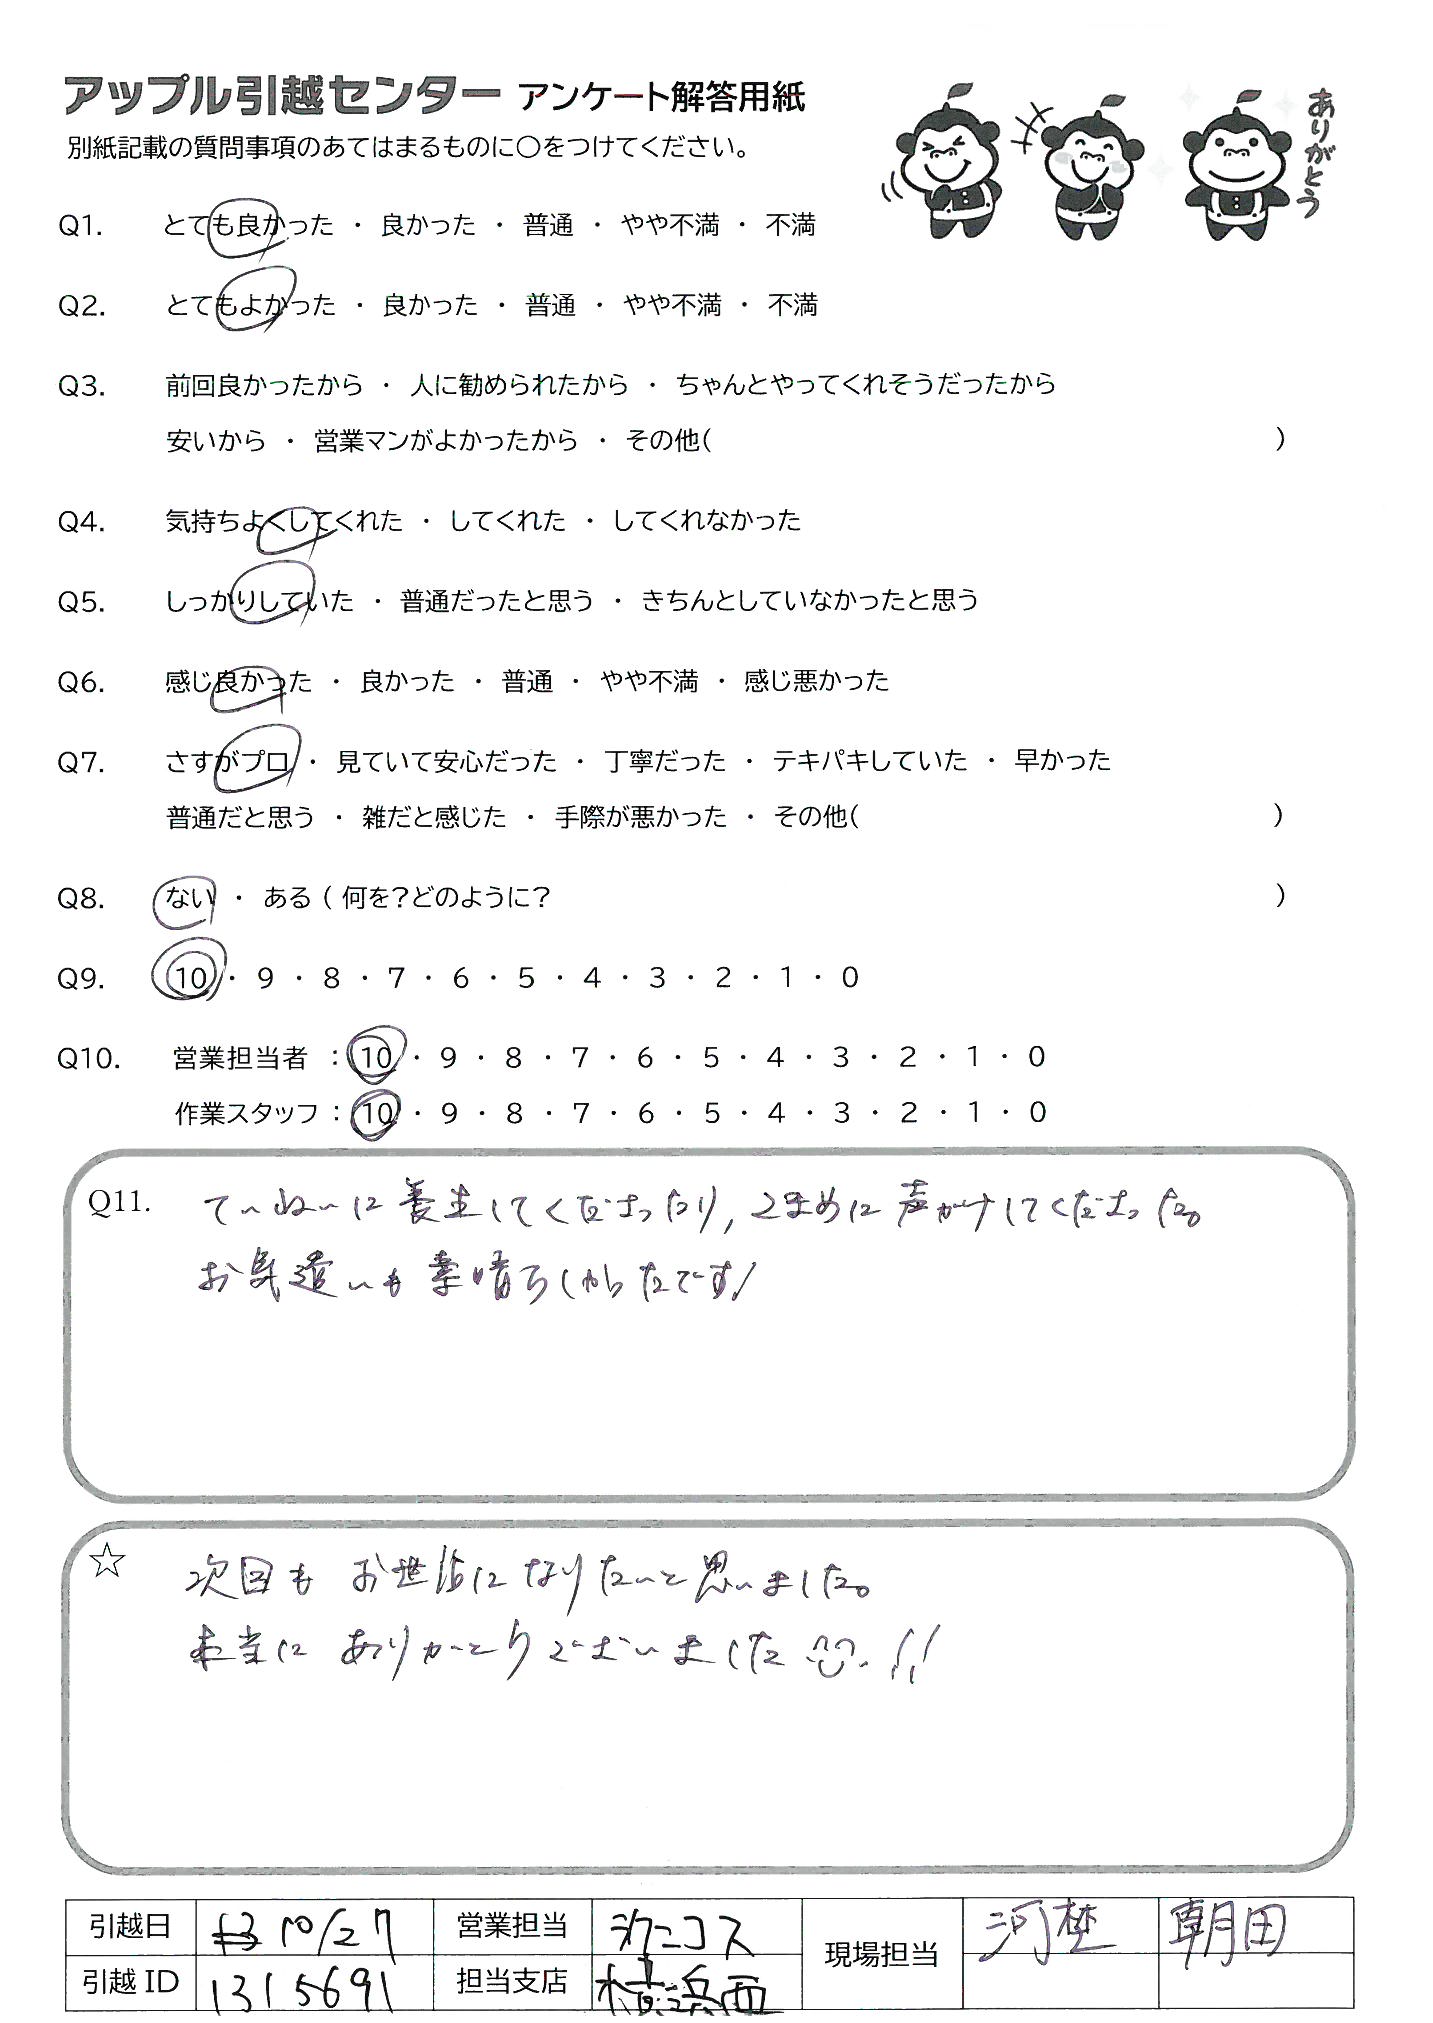 アップル引越センター アンケート解答用紙
ありがとう
別紙記載の質問事項のあてはまるものに〇をつけてください。
Q1. とても良かった ・ 良かった ・ 普通 ・ やや不満 ・ 不満
Q2. とてもよかった ・ 良かった ・ 普通 ・ やや不満 ・ 不満
Q3. 前回良かったから ・ 人に勧められたから ・ ちゃんとやってくれそうだったから
安いから ・ 営業マンがよかったから ・ その他( )
Q4. 気持ちよくしてくれた ・ してくれた ・ してくれなかった
Q5. しっかりしていた ・ 普通だったと思う ・ きちんとしていなかったと思う
Q6. 感じ良かった ・ 良かった ・ 普通 ・ やや不満 ・ 感じ悪かった
Q7. さすがプロ ・ 見ていて安心だった ・ 丁寧だった ・ テキパキしていた ・ 早かった
普通だと思う ・ 雑だと感じた ・ 手際が悪かった ・ その他( )
Q8. ない ・ ある ( 何を?どのように? )
Q9. 10 ・ 9 ・ 8 ・ 7 ・ 6 ・ 5 ・ 4 ・ 3 ・ 2 ・ 1 ・ 0
Q10. 営業担当者 : 10 ・ 9 ・ 8 ・ 7 ・ 6 ・ 5 ・ 4 ・ 3 ・ 2 ・ 1 ・ 0
作業スタッフ : 10 ・ 9 ・ 8 ・ 7 ・ 6 ・ 5 ・ 4 ・ 3 ・ 2 ・ 1 ・ 0
Q11. てぃねぃに養生してくださったり, こまめに声がけしてくださった。
お気遣いも素晴らしかったです!
☆ 次回も お世話になりたいと思いました。
本当に ありがとうございました !!
引越日 10/27 営業担当 現場担当 朝田
引越ID 1315691 担当支店 横浜西